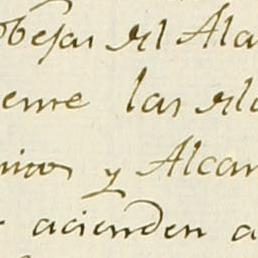 obejas del Ala
eme las del
nicos y Alcan
acienden a